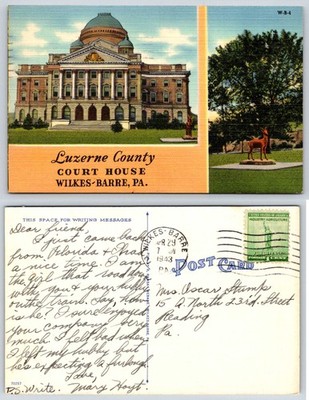 W-B-4
Luzerne County
COURT HOUSE
WILKES-BARRE, PA.
THIS SPACE FOR WRITING MESSAGES
Dear friend,
I just came back
from Florida & had
a nice time. I was
the girl that rode
with you & your hubby
on the train. Say, how
is he? I sure enjoyed
your company very
much. I felt bad when
I left my hubby but
he's expecting a furlough
Love,
P.S. Write. Mary Hoyt
WILKES-BARRE
APR 29
7
1943
PA.
POST CARD
Mrs. Oscar Stumps
15 A North 23rd. Street
Reading
Pa.